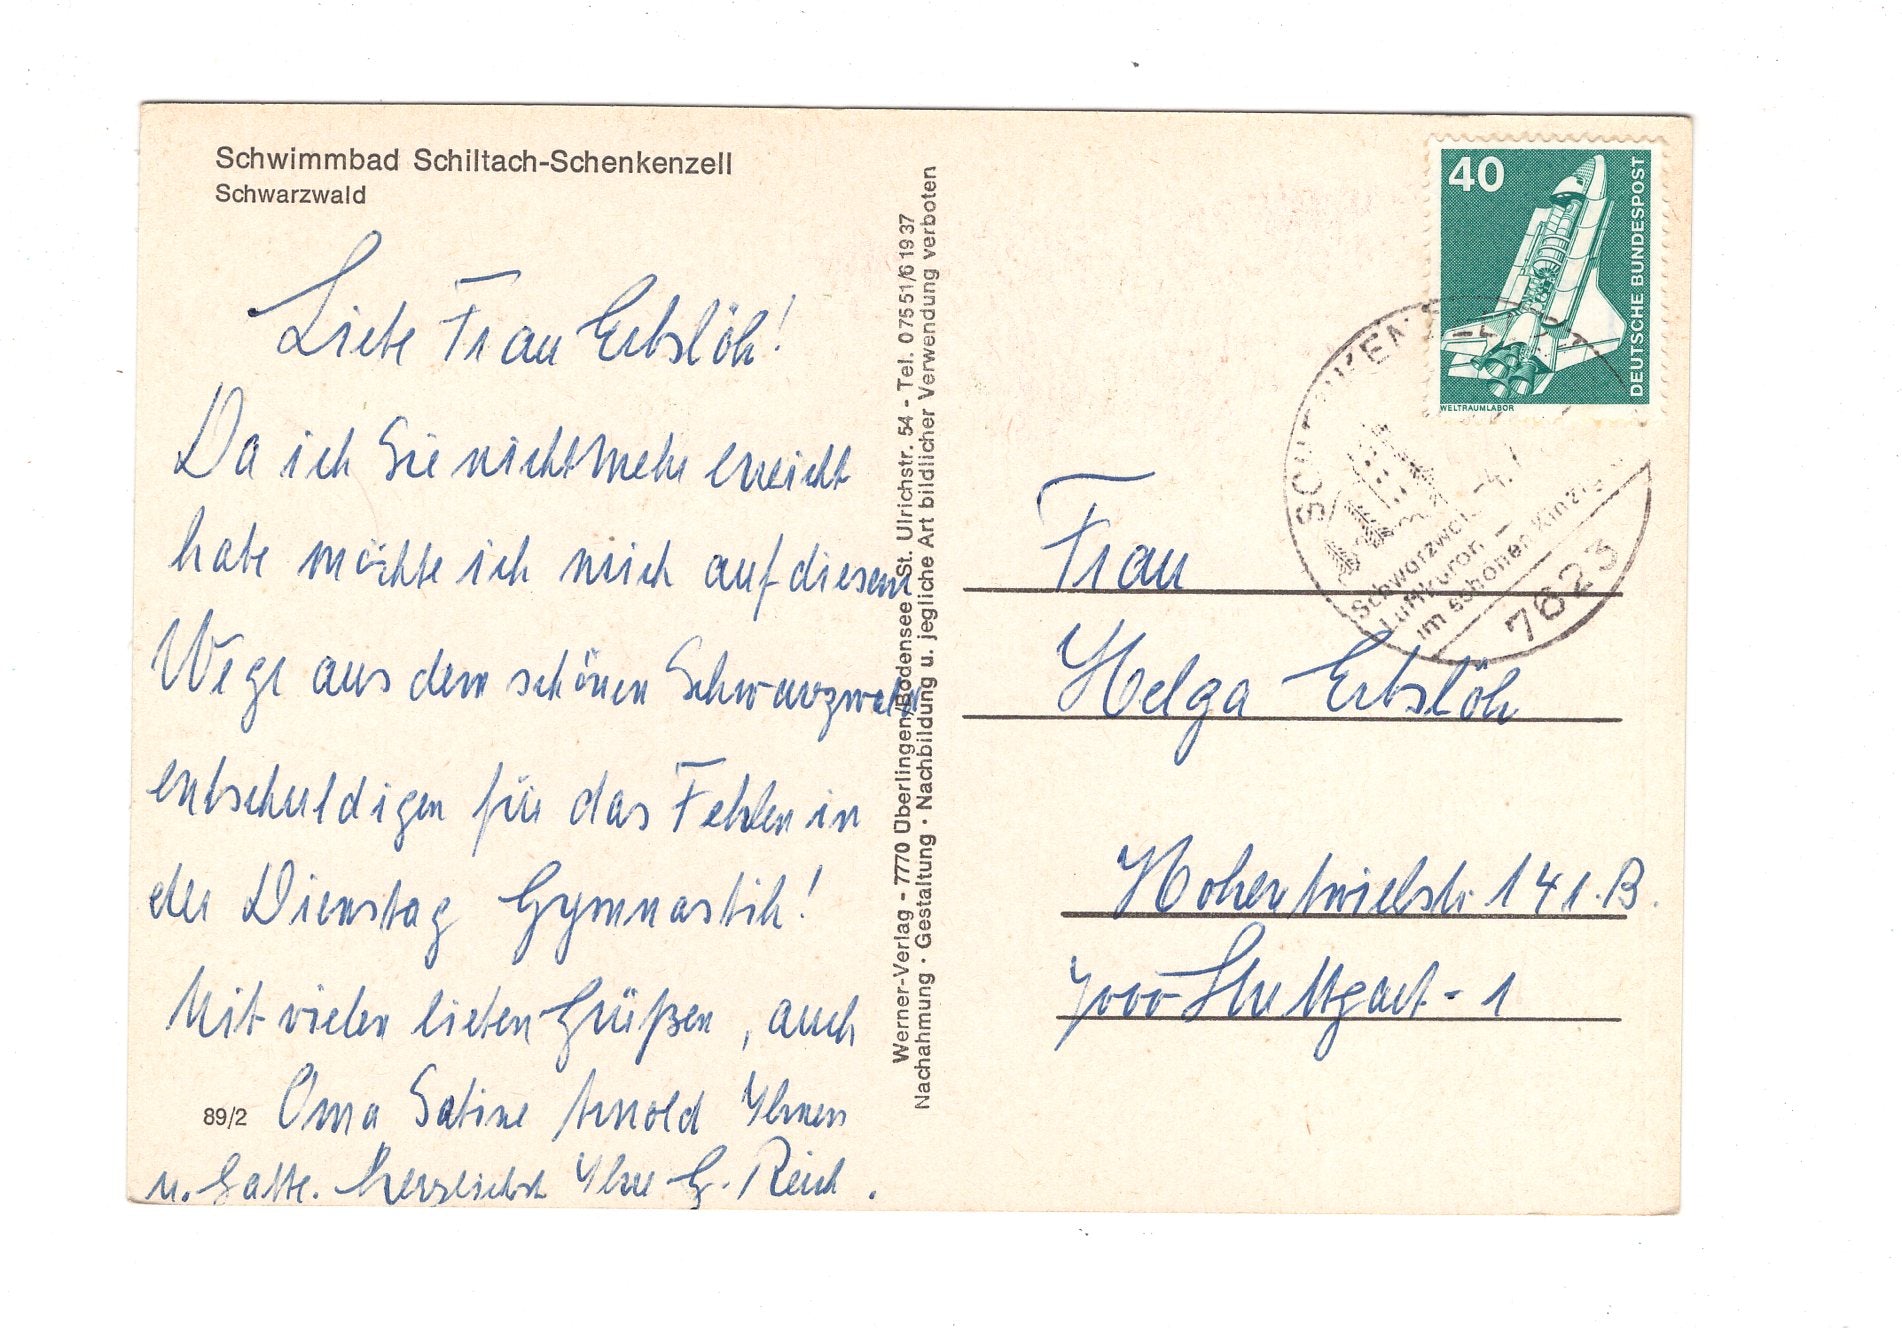 Schwimmbad Schiltach-Schenkenzell
Schwarzwald
Liebe Frau Erbslöh!
Da ich Sie nicht mehr erreicht
habe möchte ich mich auf diesem
Wege aus dem schönen Schwarzwald
entschuldigen für das Fehlen in
der Dienstag Gymnastik!
Mit vielen lieben Grüßen, auch
Oma Sabine Arnold Ihnen
u. Gatte. Herzlichst Ihre G. Reich.
89/2
Werner-Verlag - 7770 Überlingen/Bodensee St. Ulrichstr. 54 - Tel. 07551/61937
Nachahmung · Gestaltung · Nachbildung u. jegliche Art bildlicher Verwendung verboten
40
DEUTSCHE BUNDESPOST
WELTRAUMLABOR
Luftkurort
im schönen Kinzig
7623
Frau
Helga Erbslöh
Hohentwielstr. 141.B.
7000 Stuttgart-1